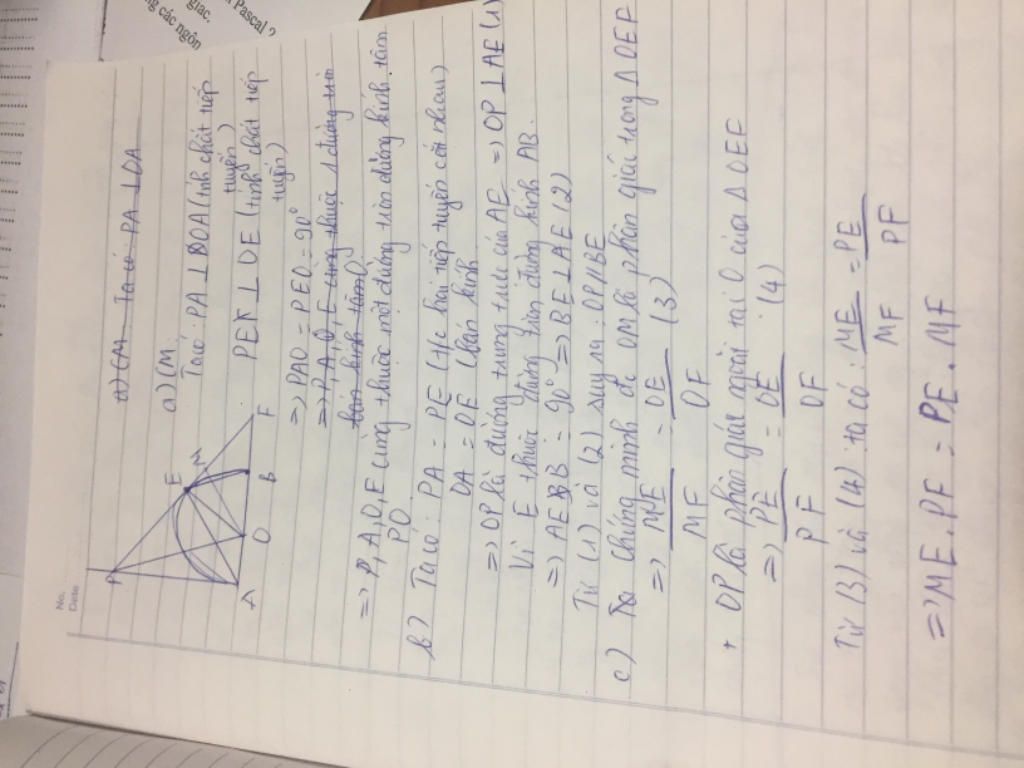 No.
Date
a) CM Ta có: PA ⊥ OA
a) CM:
Ta có: PA ⊥ BOA (tính chất tiếp
tuyến)
PE ⊥ OE (tính chất tiếp
tuyến)
=> PAO = PEO = 90°
=> P, A, O, E cùng thuộc 1 đường tròn
bán kính tâm O
=> P, A, O, E cùng thuộc một đường tròn đường kính tâm
PO
b) Ta có: PA = PE (t/c hai tiếp tuyến cắt nhau)
OA = OE (bán kính
=> OP là đường trung trực của AE => OP ⊥ AE (1)
Vì E thuộc đường tròn đường kính AB.
=> AEB = 90° => BE ⊥ AE (2)
Từ (1) và (2) suy ra: OP // BE
c) Ta chứng minh đc OM là phân giác trong Δ OEF
=> ME/MF = OE/OF (3)
+ OP là phân giác ngoài tại O của Δ OEF
=> PE/PF = OE/OF (4)
Từ (3) và (4) ta có: ME/MF = PE/PF
=> ME . PF = PE . MF
P
E
M
A
O
B
F
Pascal ?
giac.
ng các ngôn